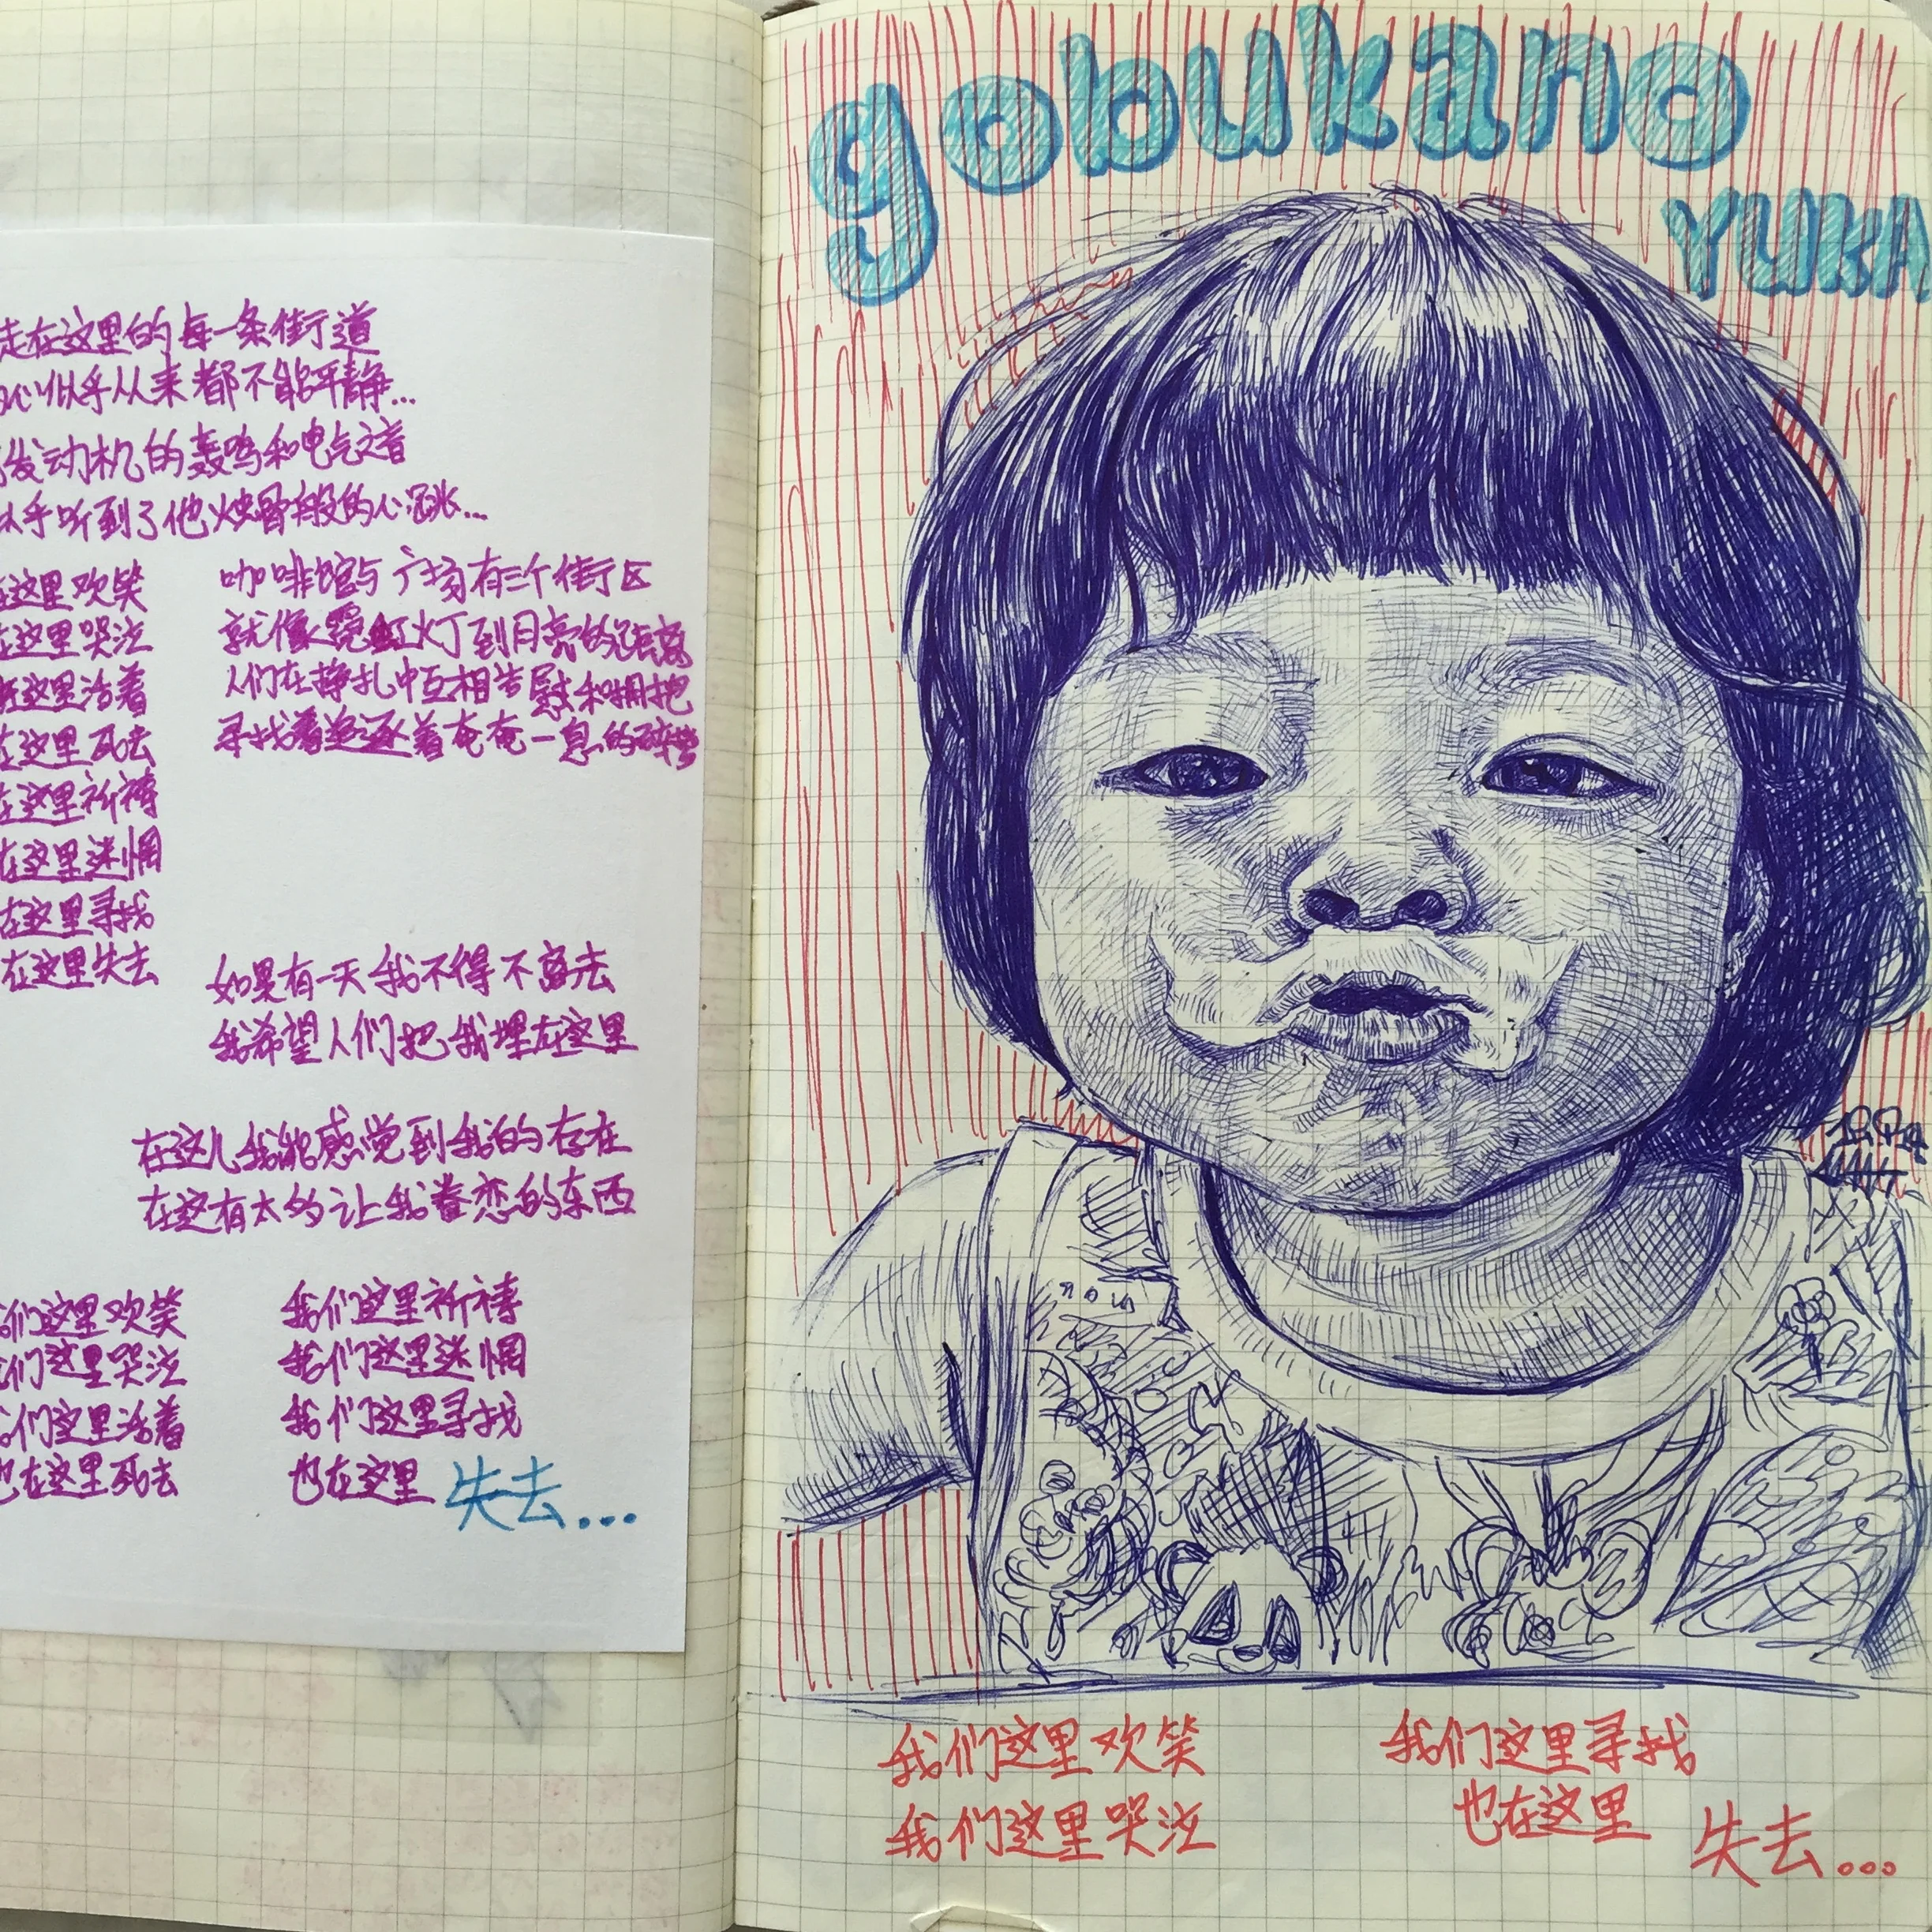 走在这里的每一条街道
心似乎从来都不能平静...
发动机的轰鸣和电气之音
似乎听到了他烛骨般的心跳...
在这里欢笑
在这里哭泣
在这里活着
在这里死去
在这里祈祷
在这里迷惘
在这里寻找
在这里失去
咖啡馆与广场有三个街区
就像霓虹灯到月亮的距离
人们在挣扎中互相告慰和拥抱
寻找着追逐着奄奄一息的碎梦
如果有一天我不得不离去
我希望人们把我埋在这里
在这儿我能感觉到我的存在
在这有太多让我眷恋的东西
们这里欢笑
们这里哭泣
们这里活着
也在这里死去
我们这里祈祷
我们这里迷惘
我们这里寻找
也在这里失去...
gobukano
YUKA
我们这里欢笑
我们这里哭泣
我们这里寻找
也在这里
失去...